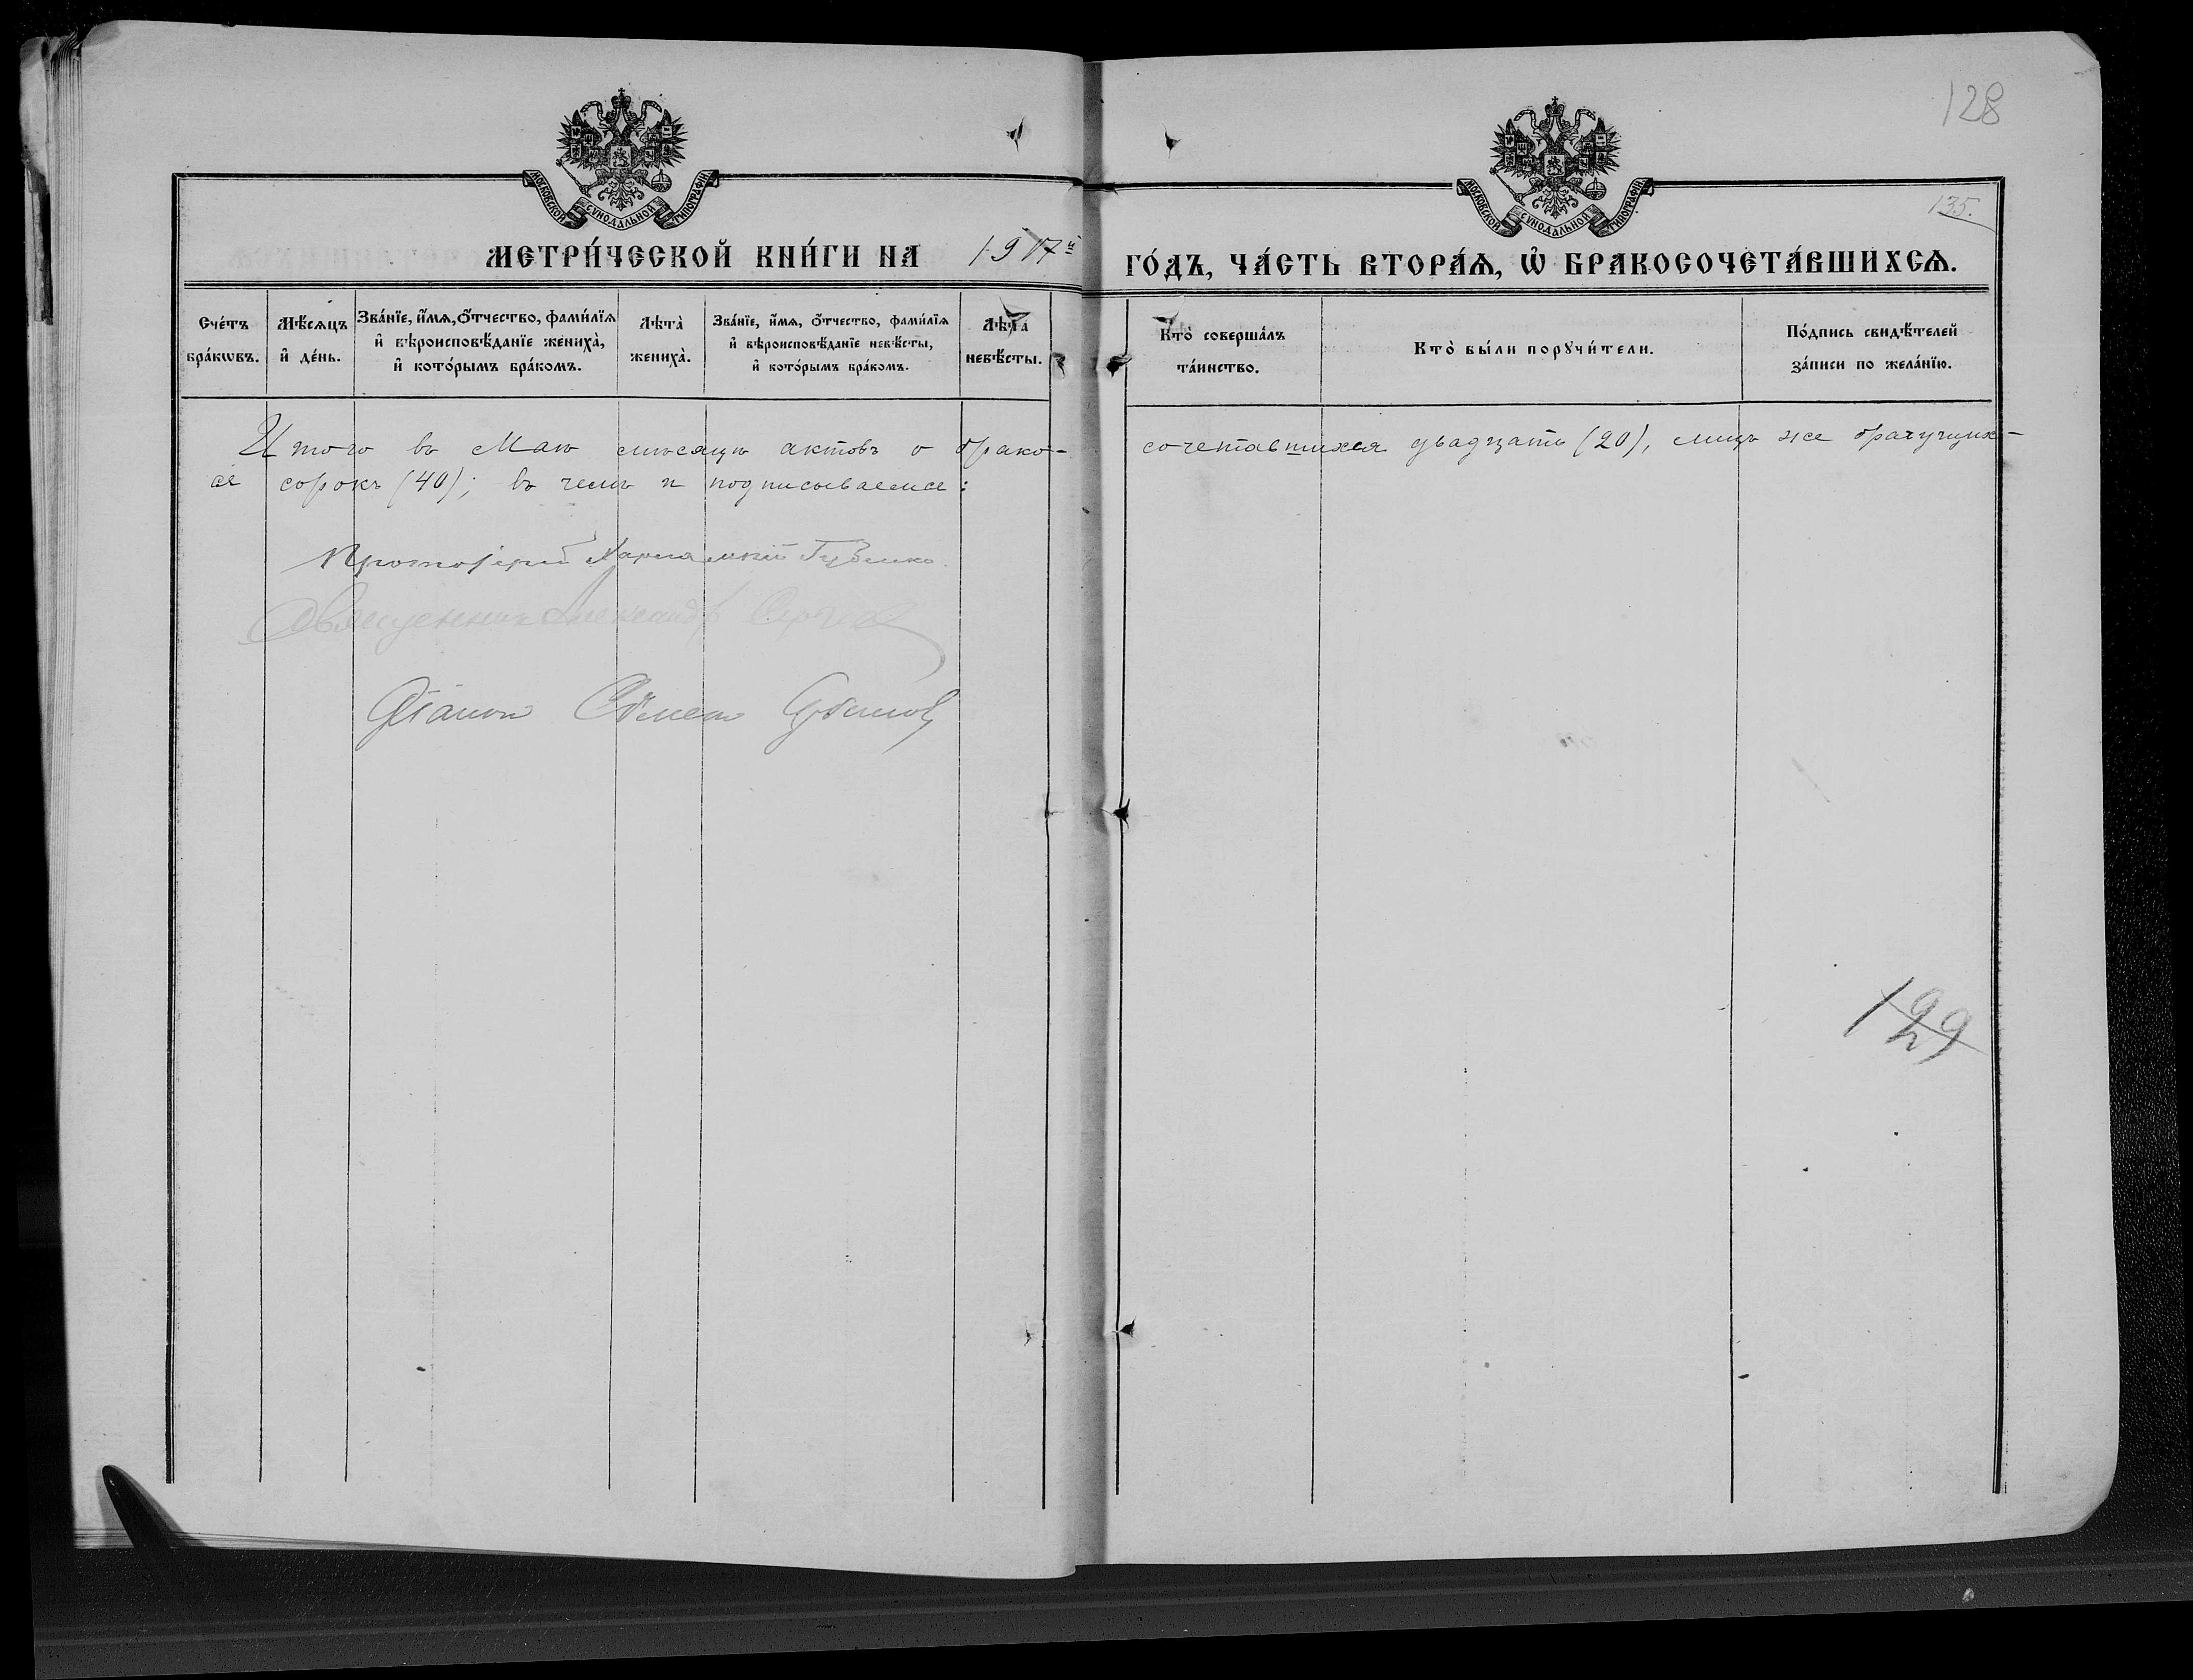 128
135.
МОСКОВСКОЙ СѴНОДАЛЬНОЙ ТИПОГРАФІИ
МОСКОВСКОЙ СѴНОДАЛЬНОЙ ТИПОГРАФІИ
МЕТРИ́ЧЕСКОЙ КНИ́ГИ НА 1917й ГО́ДЪ, ЧА́СТЬ ВТОРА́Ѧ, Ѡ҆ БРАКОСОЧЕТА́ВШИХСѦ.
Сче́тъ бра́кѡвъ.
Мѣ́сѧцъ и҆ де́нь.
Зва́нїе, и҆́мѧ, ѻ҆́тчество, фами́лїѧ и҆ вѣроисповѣ́данїе жениха̀, и҆ кото́рымъ бра́комъ.
Лѣта̀ жениха̀.
Зва́нїе, и҆́мѧ, ѻ҆́тчество, фами́лїѧ и҆ вѣроисповѣ́данїе невѣ́сты, и҆ кото́рымъ бра́комъ.
Лѣта̀ невѣ́сты.
Кто̀ соверша́лъ та́инство.
Кто̀ бы́ли порꙋчи́тели.
По́дпись свидѣ́телей за́писи по жела́нїю.
Итого въ Маѣ мѣсяцѣ актовъ о брако-сочетавшихся двадцать (20), лицъ же брачущих-
ся сорокъ (40); въ чемъ и подписываемся:
Протоіерей Харлампій
Священник Александр
Діаконъ
129